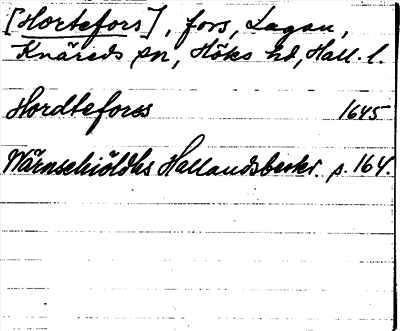 [Hortefors], fors, Lagan,
Knäreds sn, Höks hd, Hall. l.
Hordteforss 1645
Wärnschiöldhs Hallandsbeskr. p. 164.